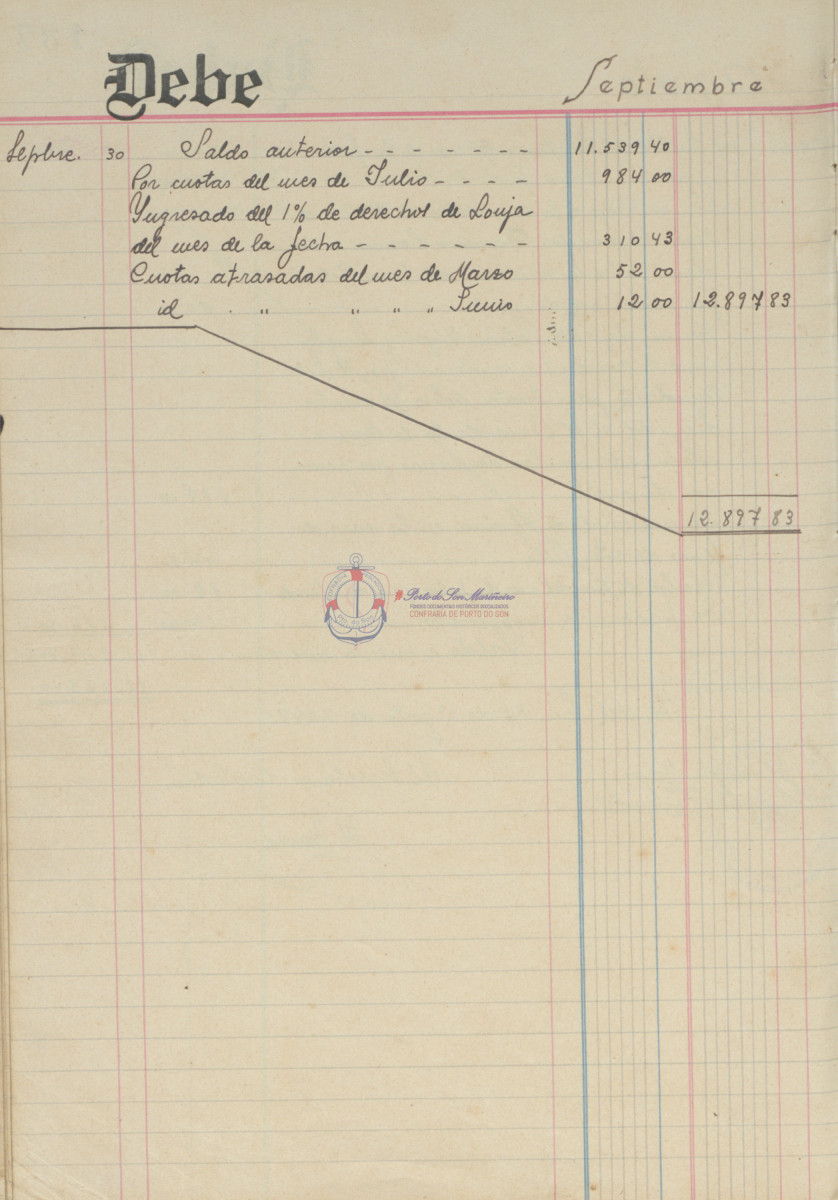 Debe Septiembre
Sepbre. 30 Saldo anterior - - - - - - - 11.539 40
Por cuotas del mes de Julio - - - - 984 00
Yngresado del 1% de derechos de Lonja
del mes de la fecha - - - - - - 310 43
Cuotas atrasadas del mes de Marzo 52 00
id " " " " Junio 12 00 12.897 83
12.897 83
#Porto do Son Mariñeiro
FONDOS DOCUMENTAIS HISTÓRICOS DIXITALIZADOS
CONFRARÍA DE PORTO DO SON